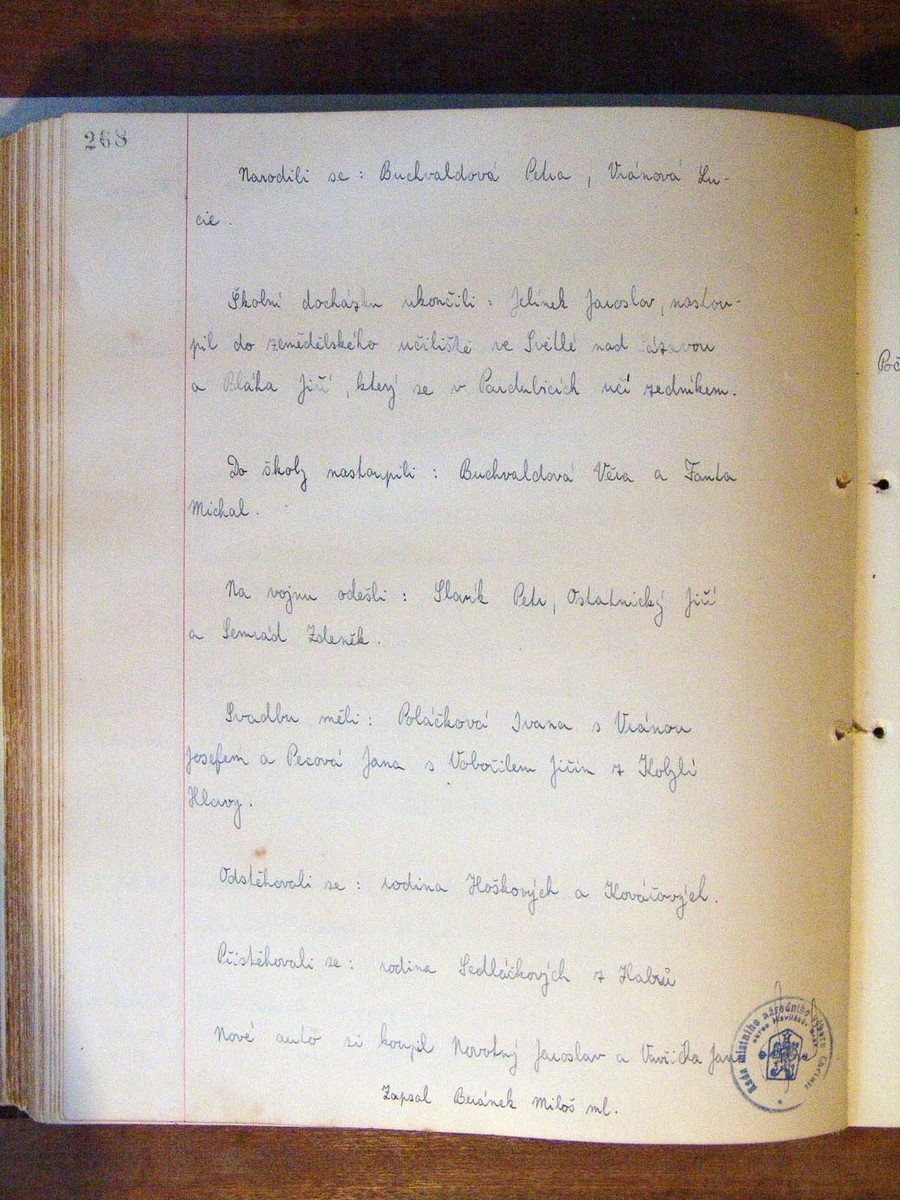 268
Narodili se : Buchvaldová Petra , Vránová Lu-
cie .
Školní docházku ukončili : Jelínek Jaroslav , nastou-
pil do zemědělského učiliště ve Světlé nad Sázavou
a Bláha Jiří , který se v Pardubicích učí zedníkem .
Do školy nastoupili : Buchvaldová Věra a Fanta
Michal .
Na vojnu odešli : Slavík Petr , Ostatnický Jiří
a Semrád Zdeněk .
Svadbu měli : Poláčková Ivana s Vránou
Josefem a Pecová Jana s Vobořilem Jiřím z Kobylí
Hlavy .
Odstěhovali se : rodina Hoškových a Kovářových .
Přistěhovali se : rodina Sedláčkových z Habrů
Nové auto si koupil Novotný Jaroslav a Vavřička Jan
Zapsal Beránek Miloš ml .
Rada místního národního výboru
okres Havlíčkův Brod
Poč